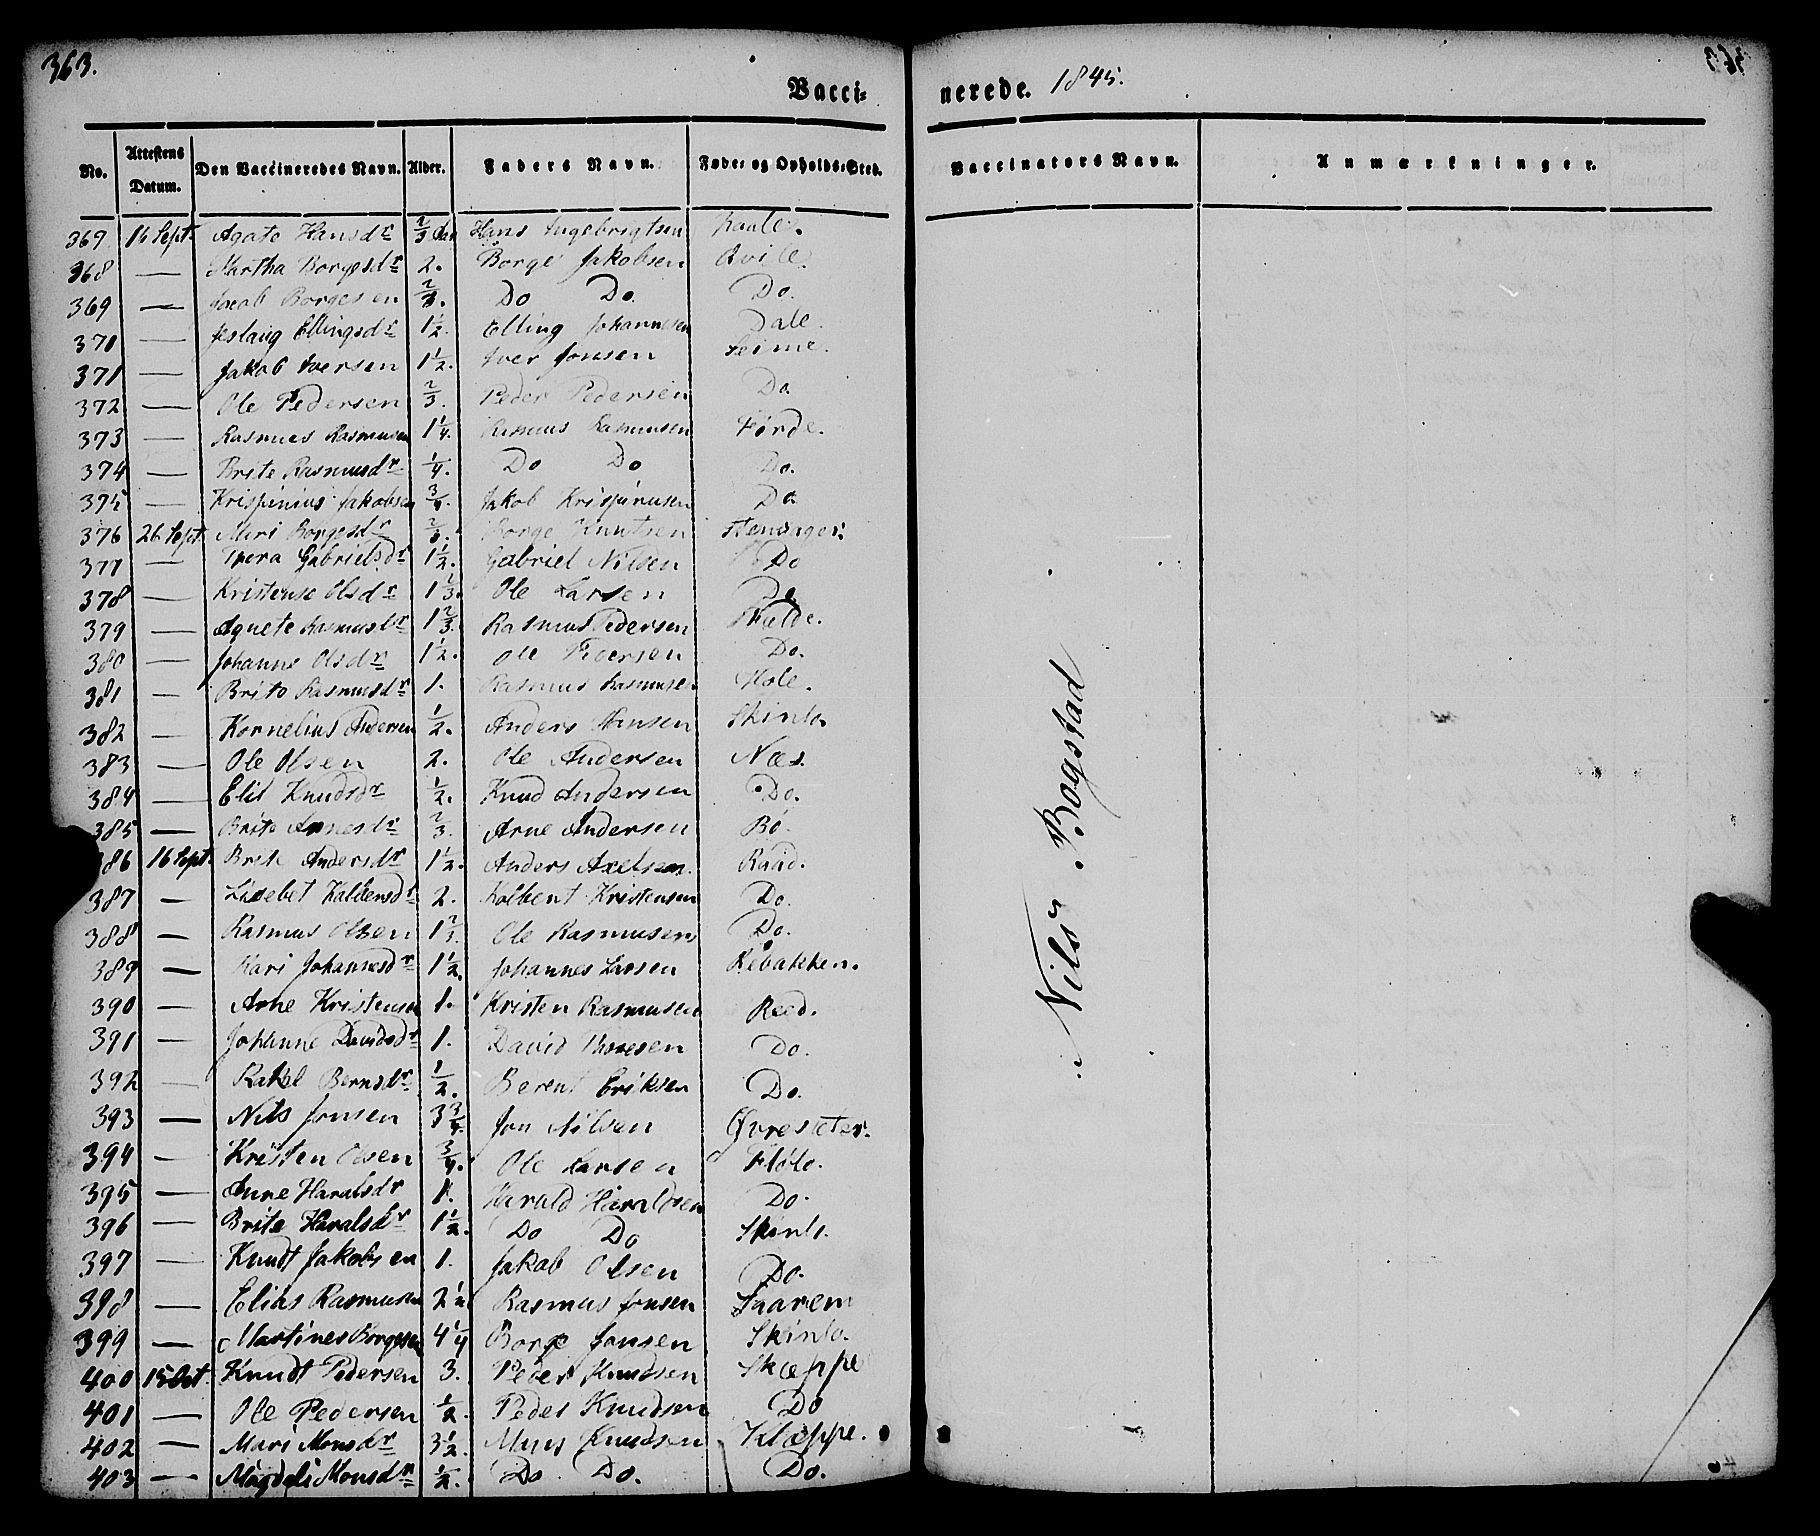 363.
Vacci-
nerede. 1845.
No. Attestens Datum. Den Vaccineredes Navn. Alder. Faders Navn. Føde- og Opholds-Sted. Vaccinators Navn. Anmærkninger.
369 16 Sept. Agate Hansdr 2/3 Aar Hans Ingebrigtsen
368 — Martha Borgesdr 2. Borge Jakobsen Qvile.
369 — Jacob Borgesen 2/3. Do Do. Do.
371 — Jeslaug Ellingsdr 1 1/2. Elling Johannesen Dale.
371 — Jakob Iversen 1 1/2. Iver Jonsen Seime.
372 — Ole Pedersen 2/3. Peder Pedersen Do.
373 — Rasmus Rasmusen 1 1/4. Rasmus Rasmusen Førde.
374 — Brite Rasmusdr 1/4. Do Do Do.
375 — Krispinius Jakobsen 3/4. Jakob Krispinusen Do.
376 26 Sept. Mari Borgesdr 2/3. Borge Knutsen
377 — Thera Gabrielsdr 1 1/2. Gabriel Nilsen Do
378 — Kristense Olsdr 1 2/3. Ole Larsen Do
379 — Agnete Rasmusdr 1 2/3. Rasmus Pedersen
380 — Johanne Olsdr 1 1/2. Ole Pedersen Do.
381 — Brite Rasmusdr 1. Rasmus Rasmusen Hole.
382 — Kornelius Andersen 1/2. Anders Hansen Skinlo
383 — Ole Olsen 2. Ole Andersen Næs.
384 — Elis Knudsdr 1/2. Knud Andersen Do.
385 — Brite Arnesdr 2/3. Arne Andersen Bö.
386 16 Sept. Brite Andersdr 1 1/2. Anders Axelsen.
387 — Lisebet 2. Kristensen Do.
388 — Rasmus Olsen 1 2/3. Ole Rasmusen Do.
389 — Kari Johannesdr 1 1/2. Johannes Larsen Rebakken.
390 — Arne Kristensen 1. Kristen Rasmusen Reed.
391 — Johanne Davidsdr 1. David Do.
392 — Rakel Berndsdr 1/2. Berent Eriksen Do.
393 — Nils Jonsen 3 3/4. Jon Nilsen Øvresæter.
394 — Kristen Olsen 3/4. Ole Larsen Fløte.
395 — Anne Haralsdr 1. Harald Haraldsen Do.
396 — Brite Haralsdr 1 1/2. Do Do Skinlo.
397 — Knudt Jakobsen 1. Jakob Olsen Do.
398 — Elias Rasmusen 2 1/2 Rasmus Jonsen Faarem
399 — Martines Borgesen 4 1/4 Borge Jonsen Skinlo.
400 15 Oct. Knudt Pedersen 3. Peder Knudsen Skæppe
401 — Ole Pedersen 1/2. Peder Knudsen Do
402 — Mari Monsdr 3 1/2. Mons Knudsen Klæppe.
403 — Magdeli Monsdr 1/2. Do Do. Do.
Nils Bogstad